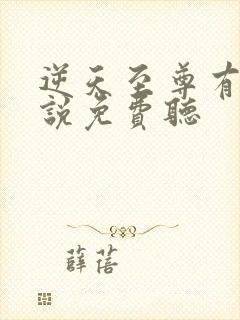 逆天至尊有
説免費聽
薛蓓